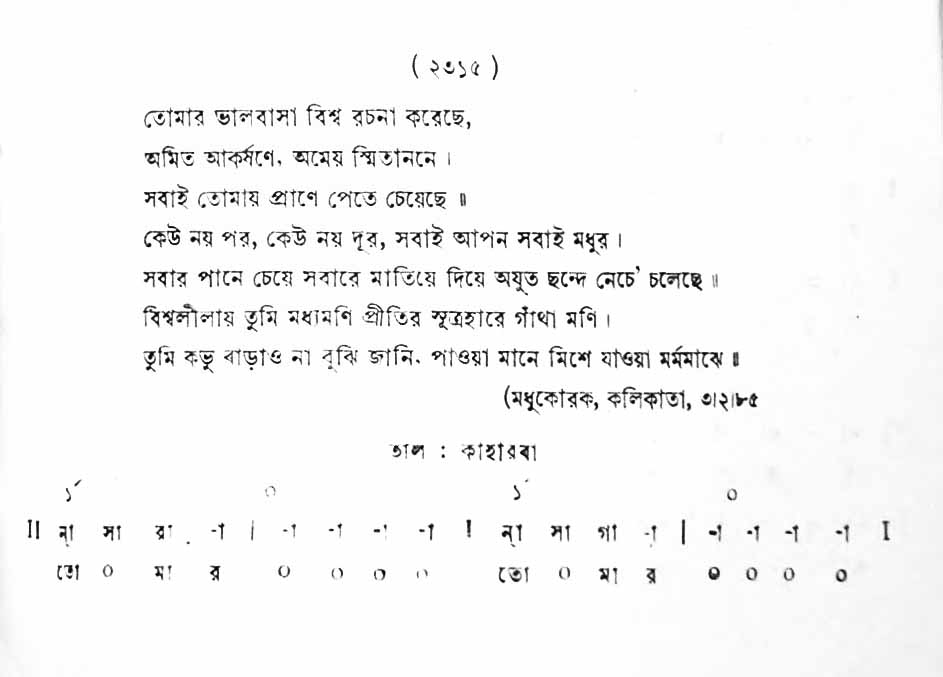 ( ২৩১৫ )
তোমার ভালবাসা বিশ্ব রচনা করেছে,
অমিত আকর্ষণে, অমেয় স্মিতাননে ।
সবাই তোমায় প্রাণে পেতে চেয়েছে ॥
কেউ নয় পর, কেউ নয় দূর, সবাই আপন সবাই মধুর ।
সবার পানে চেয়ে সবারে মাতিয়ে দিয়ে অযুত ছন্দে নেচে' চলেছে ॥
বিশ্বলীলায় তুমি মধ্যমণি প্রীতির সূত্রহারে গাঁথা মণি ।
তুমি কভু বাড়াও না বুঝি জানি, পাওয়া মানে মিশে যাওয়া মর্মমাঝে ॥
(মধুকোরক, কলিকাতা, ৩।২।৮৫
তাল : কাহারবা
১´ ০ ১´ ০
II ন্া সা রা -া | -া -া -া -া I ন্া সা গা -া | -া -া -া -া I
তো ০ মা র ০ ০ ০ ০ তো ০ মা র ০ ০ ০ ০